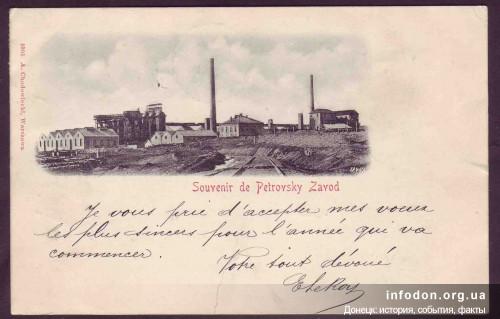 Souvenir de Petrovsky Zavod
Je vous prie d'accepter mes voeux
les plus sincers pour l'année qui va
commencer.
Votre tout dévoué
ELeRoy
A. Chodowiecki, Warszawa.
infodon.org.ua
Донецк: история, события, факты